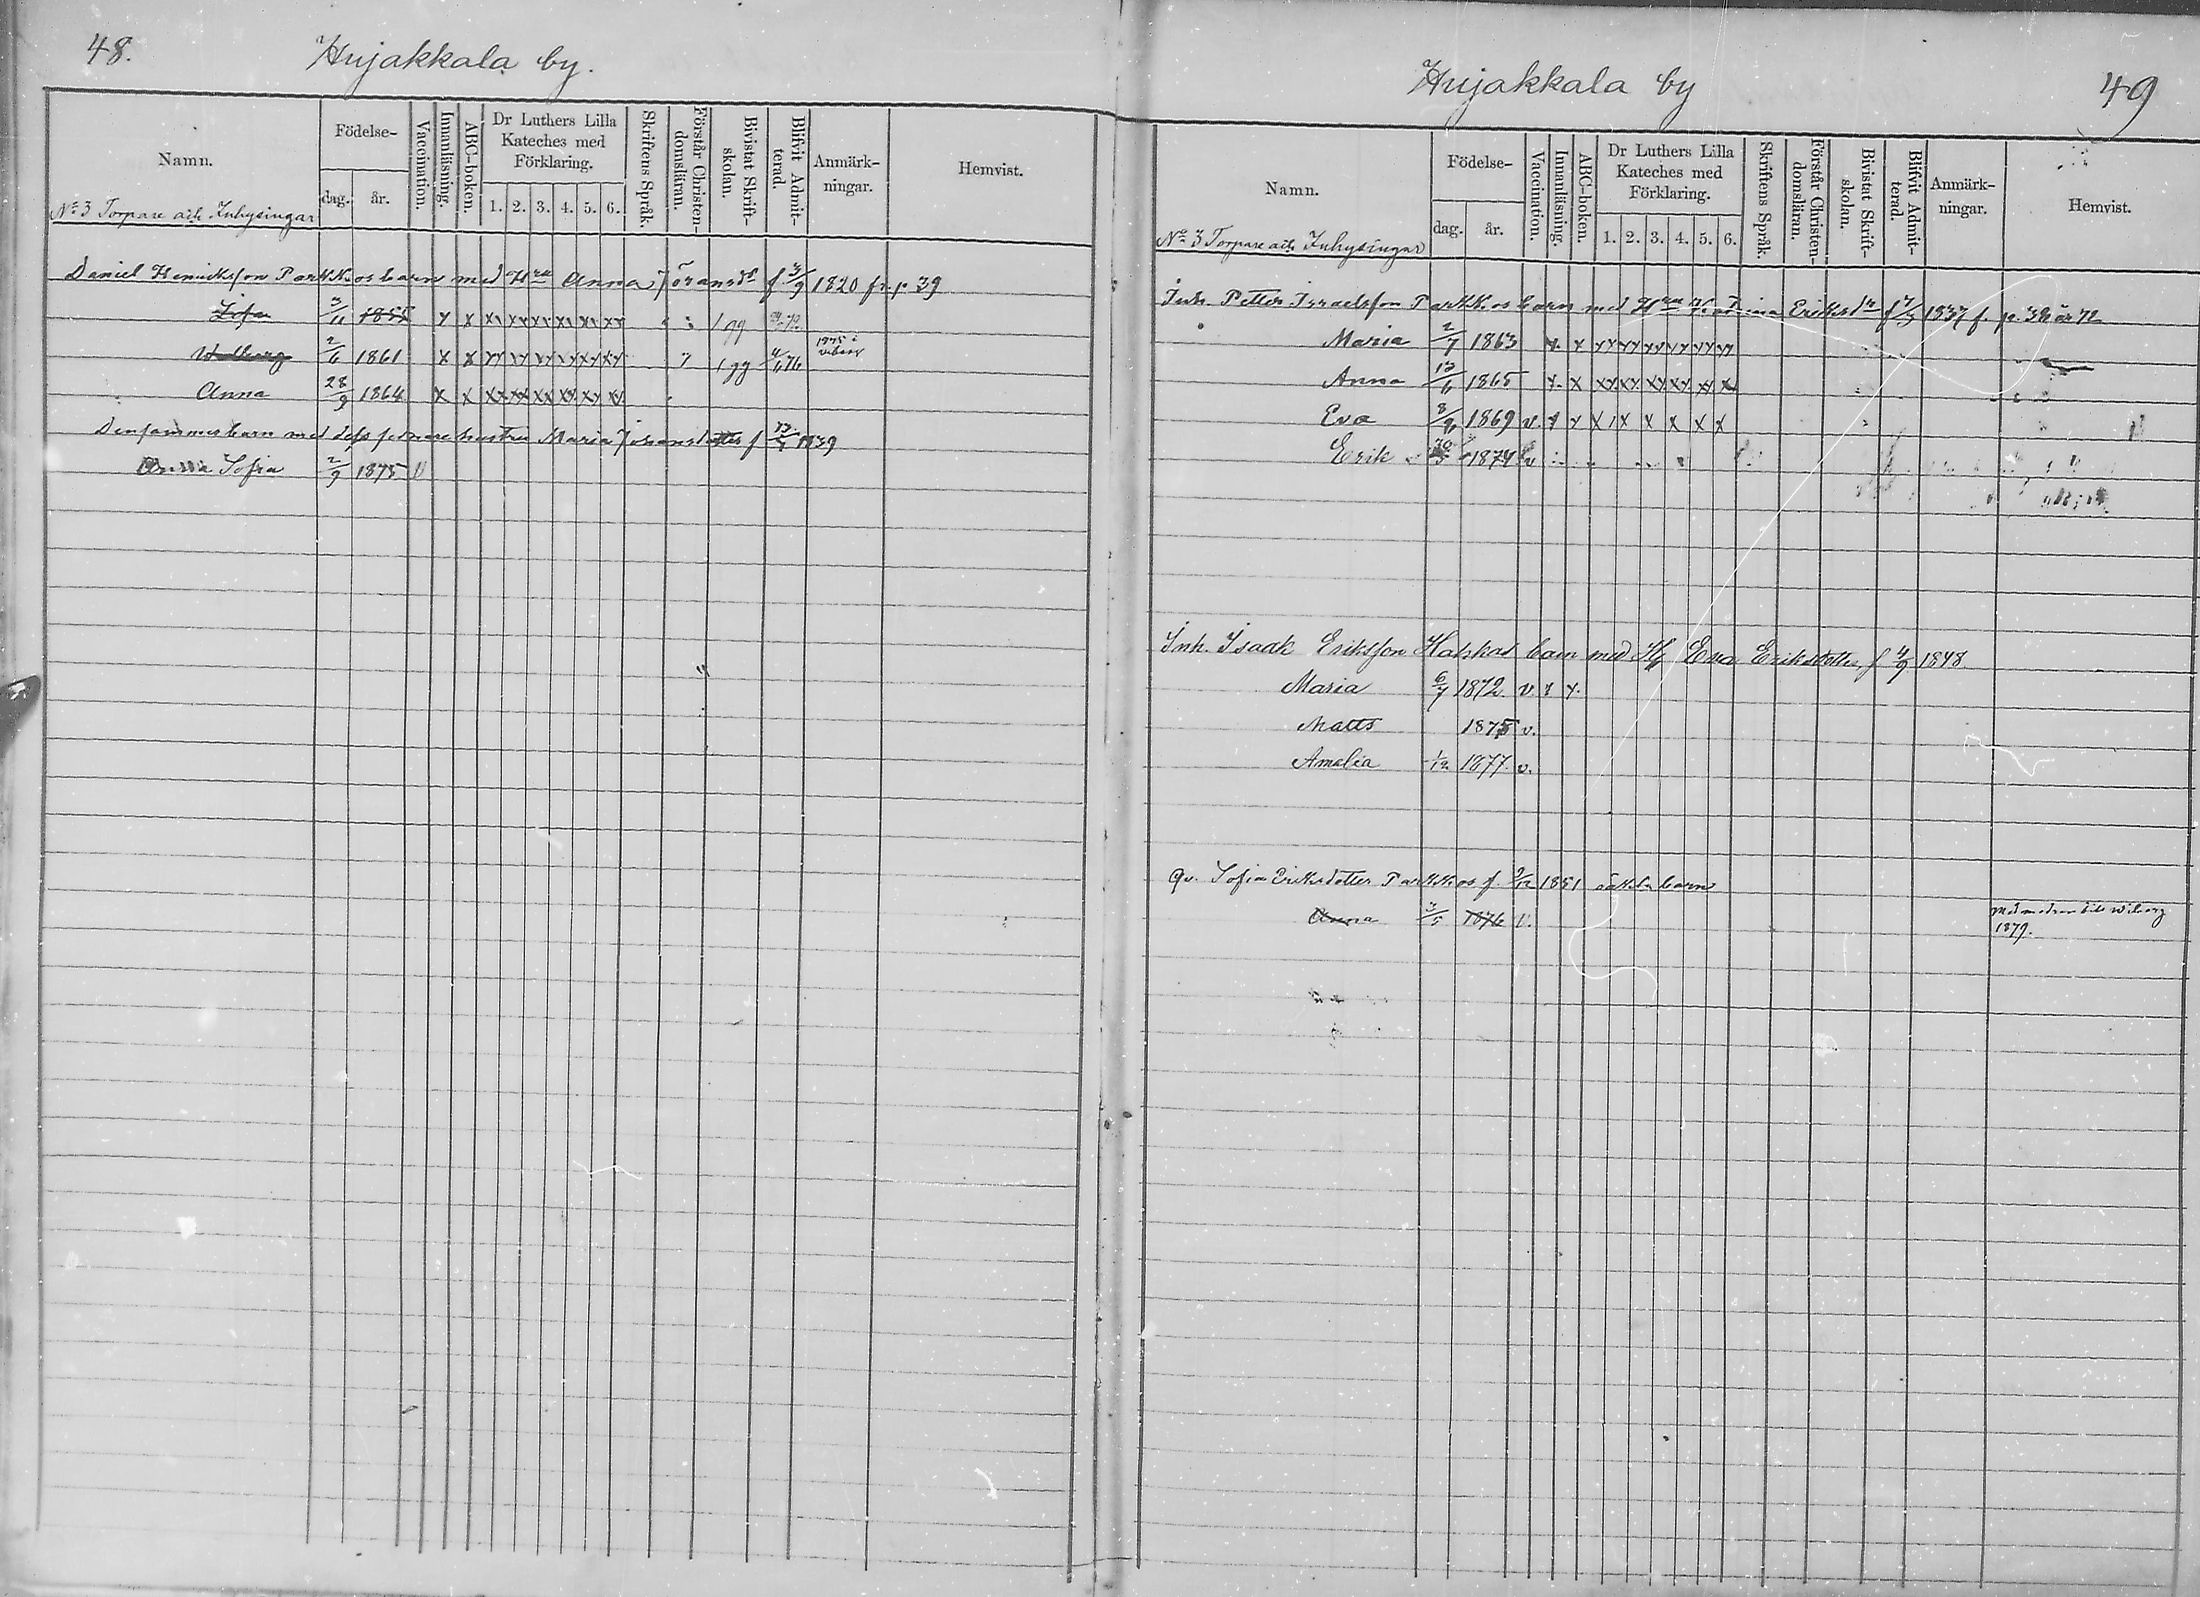 48.
Hujakkala by.
Namn.
Födelse-
dag.
år.
Vaccination.
Innanläsning.
ABC-boken.
Dr Luthers Lilla
Kateches med
Förklaring.
1. 2. 3. 4. 5. 6.
Skriftens Språk.
Förstår Christen-
domsläran.
Bivistat Skrift-
skolan.
Blifvit Admit-
terad.
Anmärk-
ningar.
Hemvist.
No 3 Torpare och Inhysingar
Daniel Henriksson Parkkos barn med Hru Anna Göransdr f 3/9 1820 fr. p 39
Sofia 3/11 1855 x x xx xx xx xx xx xx 1 gg
Walborg 2/6 1861 x x xx xx xx xx xx xx 1 gg 4/6 76 1875 i wiborg
Anna 28/9 1864 x x xx xx xx xx xx xx
Densammes barn med dess sednare hustru Maria Johansdotter f 1839
Anna Sofia 2/9 1875 v
Hujakkala by
49
Namn.
Födelse-
dag.
år.
Vaccination.
Innanläsning.
ABC-boken.
Dr Luthers Lilla
Kateches med
Förklaring.
1. 2. 3. 4. 5. 6.
Skriftens Språk.
Förstår Christen-
domsläran.
Bivistat Skrift-
skolan.
Blifvit Admit-
terad.
Anmärk-
ningar.
Hemvist.
No 3 Torpare och Inhysingar
Inh. Petter Israelsson Parkkos barn med Hru Katrina Eriksdr f 1837 f. p. 38 år 72
Maria 2/7 1863 x x xx xx xx xx xx xx
Anna 13/6 1865 x x xx xx xx xx xx x
Eva 8/9 1869 v. x x x x x x x x
Erik 1874 v
Inh. Isaak Eriksson Hatkas barn med H Eva Eriksdotter, f 4/9 1848
Maria 6/7 1872 v. x x.
Matts 1875 v.
Amalia 1/12 1877. v.
Qv. Sofia Eriksdotter Parkkos f. 9/12 1851 oäkta barn
Anna 3/5 1876 v. med modren till Wiborg
1879.